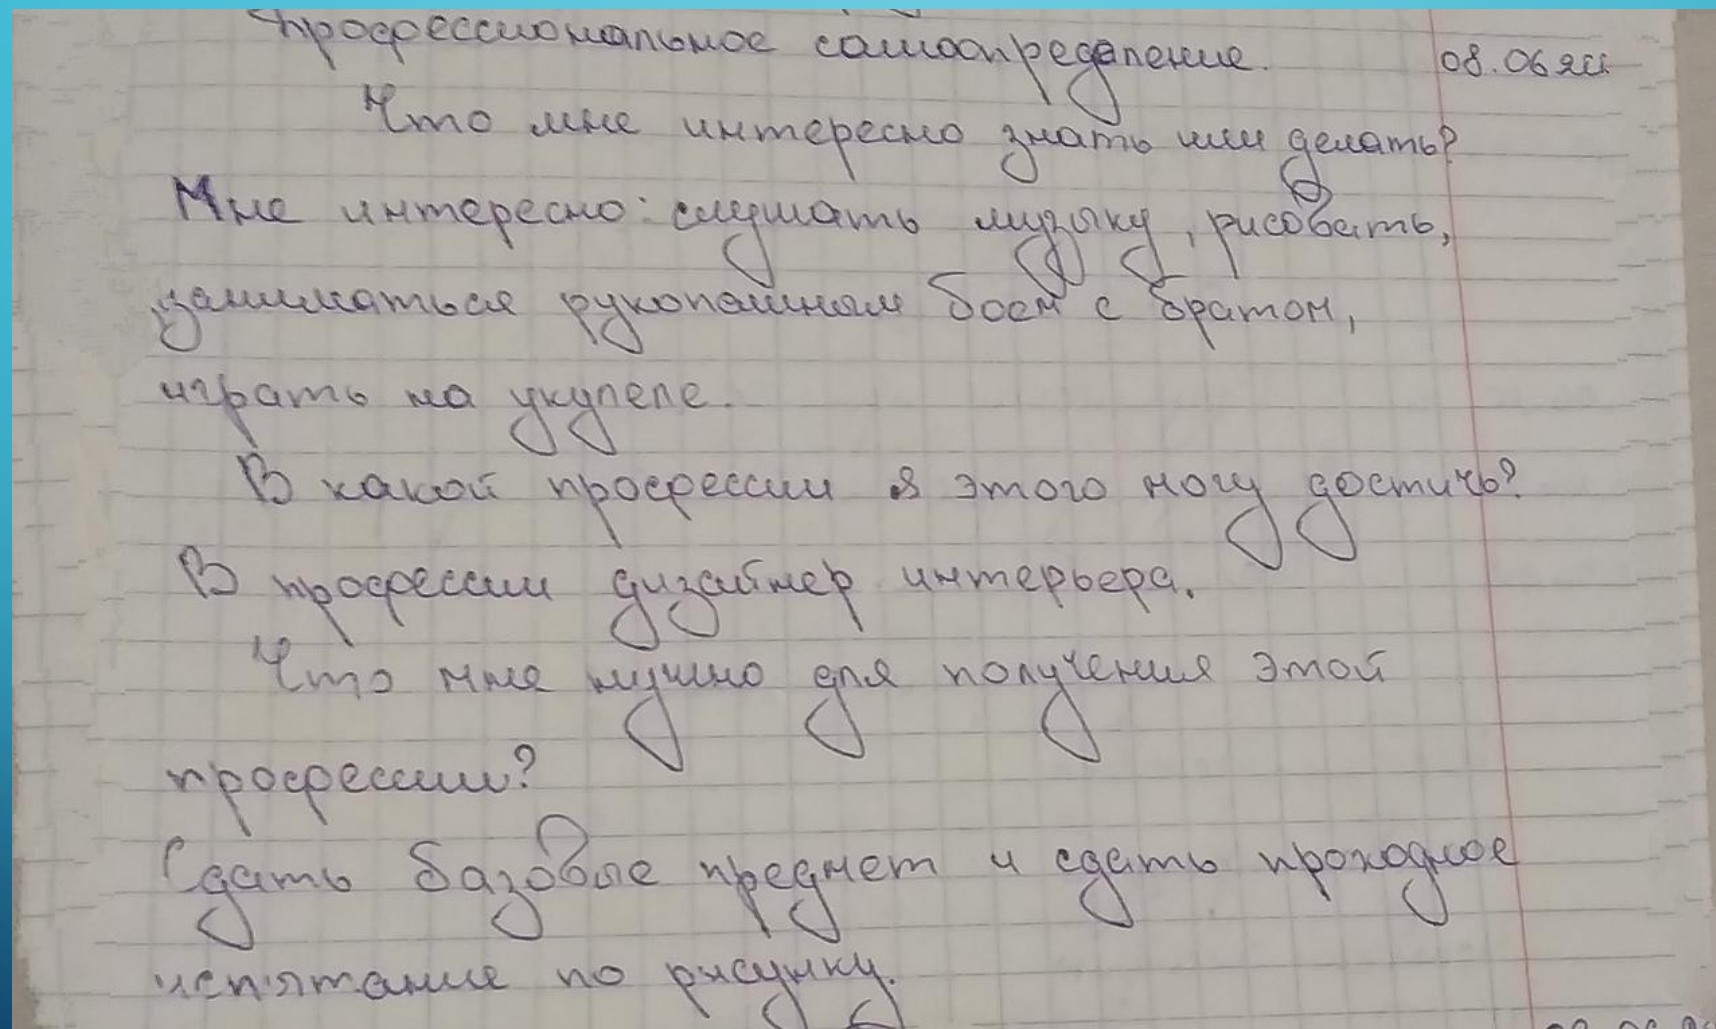 Профессиональное самоопределение. 08.06.21
Что мне интересно знать или делать?
Мне интересно: слушать музыку, рисовать,
заниматься рукопашным боем с братом,
играть на укулеле.
В какой профессии я этого могу достичь?
В профессии дизайнер интерьера.
Что мне нужно для получения этой
профессии?
Сдать базовые предмет и сдать проходное
испытание по рисунку.